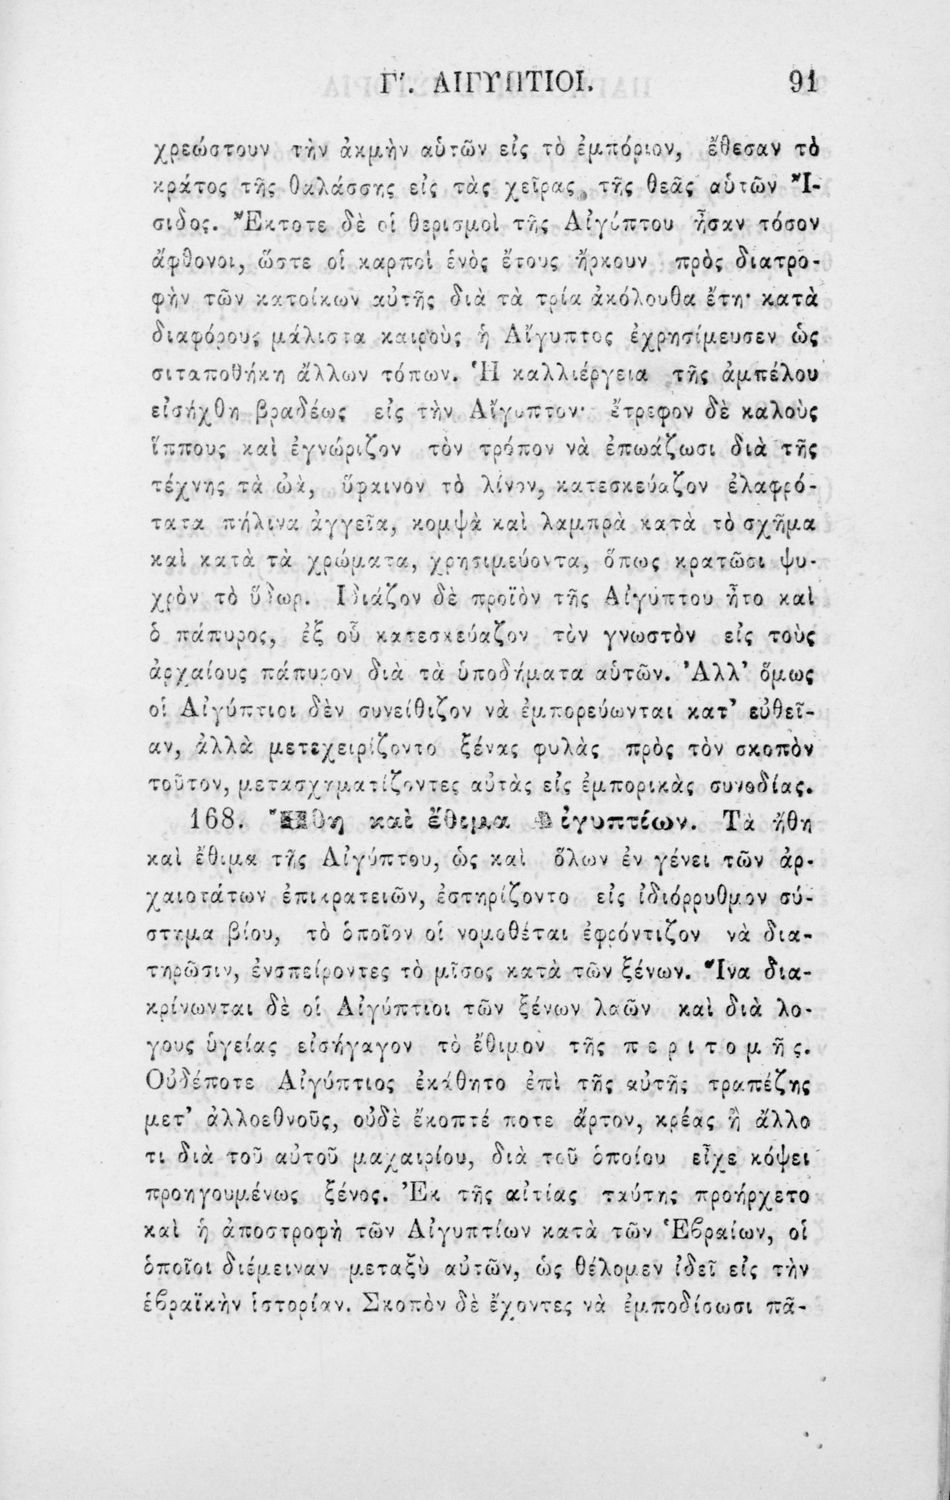 Γ'. ΑΙΓΥΠΤΙΟΙ. 91
χρεώστουν τὴν ἀκμὴν αὑτῶν εἰς τὸ ἐμπόριον, ἔθεσαν τὸ
κράτος τῆς θαλάσσης εἰς τὰς χεῖρας τῆς θεᾶς αὑτῶν Ἴ-
σιδος. Ἔκτοτε δὲ οἱ θερισμοὶ τῆς Αἰγύπτου ἦσαν τόσον
ἄφθονοι, ὥστε οἱ καρποὶ ἑνὸς ἔτους ἤρκουν πρὸς διατρο-
φὴν τῶν κατοίκων αὐτῆς διὰ τὰ τρία ἀκόλουθα ἔτη· κατὰ
διαφόρους μάλιστα καιροὺς ἡ Αἴγυπτος ἐχρησίμευσεν ὡς
σιταποθήκη ἄλλων τόπων. Ἡ καλλιέργεια τῆς ἀμπέλου
εἰσήχθη βραδέως εἰς τὴν Αἴγυπτον· ἔτρεφον δὲ καλοὺς
ἵππους καὶ ἐγνώριζον τὸν τρόπον νὰ ἐπωάζωσι διὰ τῆς
τέχνης τὰ ὠὰ, ὕφαινον τὸ λίνον, κατεσκεύαζον ἐλαφρό-
τατα πήλινα ἀγγεῖα, κομψὰ καὶ λαμπρὰ κατὰ τὸ σχῆμα
καὶ κατὰ τὰ χρώματα, χρησιμεύοντα, ὅπως κρατῶσι ψυ-
χρὸν τὸ ὕδωρ. Ἰδιάζον δὲ προϊὸν τῆς Αἰγύπτου ἦτο καὶ
ὁ πάπυρος, ἐξ οὗ κατεσκεύαζον τὸν γνωστὸν εἰς τοὺς
ἀρχαίους πάπυρον διὰ τὰ ὑποδήματα αὑτῶν. Ἀλλ' ὅμως
οἱ Αἰγύπτιοι δὲν συνείθιζον νὰ ἐμπορεύωνται κατ' εὐθεῖ-
αν, ἀλλὰ μετεχειρίζοντο ξένας φυλὰς πρὸς τὸν σκοπὸν
τοῦτον, μετασχηματίζοντες αὐτὰς εἰς ἐμπορικὰς συνοδίας.
168. Ἤθη καὶ ἔθιμα Αἰγυπτίων. Τὰ ἤθη
καὶ ἔθιμα τῆς Αἰγύπτου, ὡς καὶ ὅλων ἐν γένει τῶν ἀρ-
χαιοτάτων ἐπικρατειῶν, ἐστηρίζοντο εἰς ἰδιόρρυθμον σύ-
στημα βίου, τὸ ὁποῖον οἱ νομοθέται ἐφρόντιζον νὰ δια-
τηρῶσιν, ἐνσπείροντες τὸ μῖσος κατὰ τῶν ξένων. Ἵνα δια-
κρίνωνται δὲ οἱ Αἰγύπτιοι τῶν ξένων λαῶν καὶ διὰ λό-
γους ὑγείας εἰσήγαγον τὸ ἔθιμον τῆς περιτομῆς.
Οὐδέποτε Αἰγύπτιος ἐκάθητο ἐπὶ τῆς αὐτῆς τραπέζης
μετ' ἀλλοεθνοῦς, οὐδὲ ἔκοπτέ ποτε ἄρτον, κρέας ἢ ἄλλο
τι διὰ τοῦ αὐτοῦ μαχαιρίου, διὰ τοῦ ὁποίου εἶχε κόψει
προηγουμένως ξένος. Ἐκ τῆς αἰτίας ταύτης προήρχετο
καὶ ἡ ἀποστροφὴ τῶν Αἰγυπτίων κατὰ τῶν Ἑβραίων, οἱ
ὁποῖοι διέμειναν μεταξὺ αὐτῶν, ὡς θέλομεν ἰδεῖ εἰς τὴν
ἑβραϊκὴν ἱστορίαν. Σκοπὸν δὲ ἔχοντες νὰ ἐμποδίσωσι πᾶ-